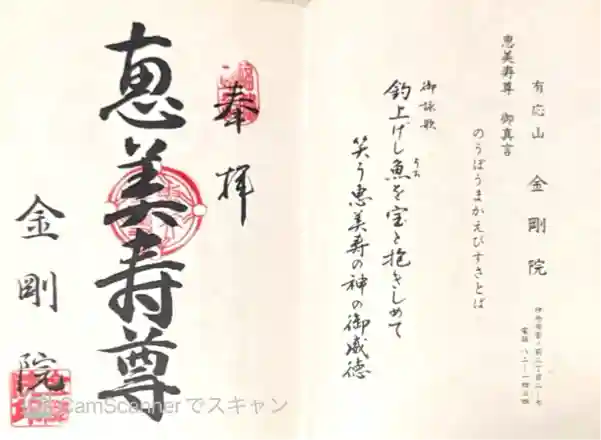 有応山 金剛院
恵美寿尊 御真言
のうぼうまかえびすさとば
御詠歌
釣上げし魚を宝と抱きしめて
うを
笑う恵美寿の神の御威徳
奉拝
恵美寿尊
金剛院
CamScannerでスキャン